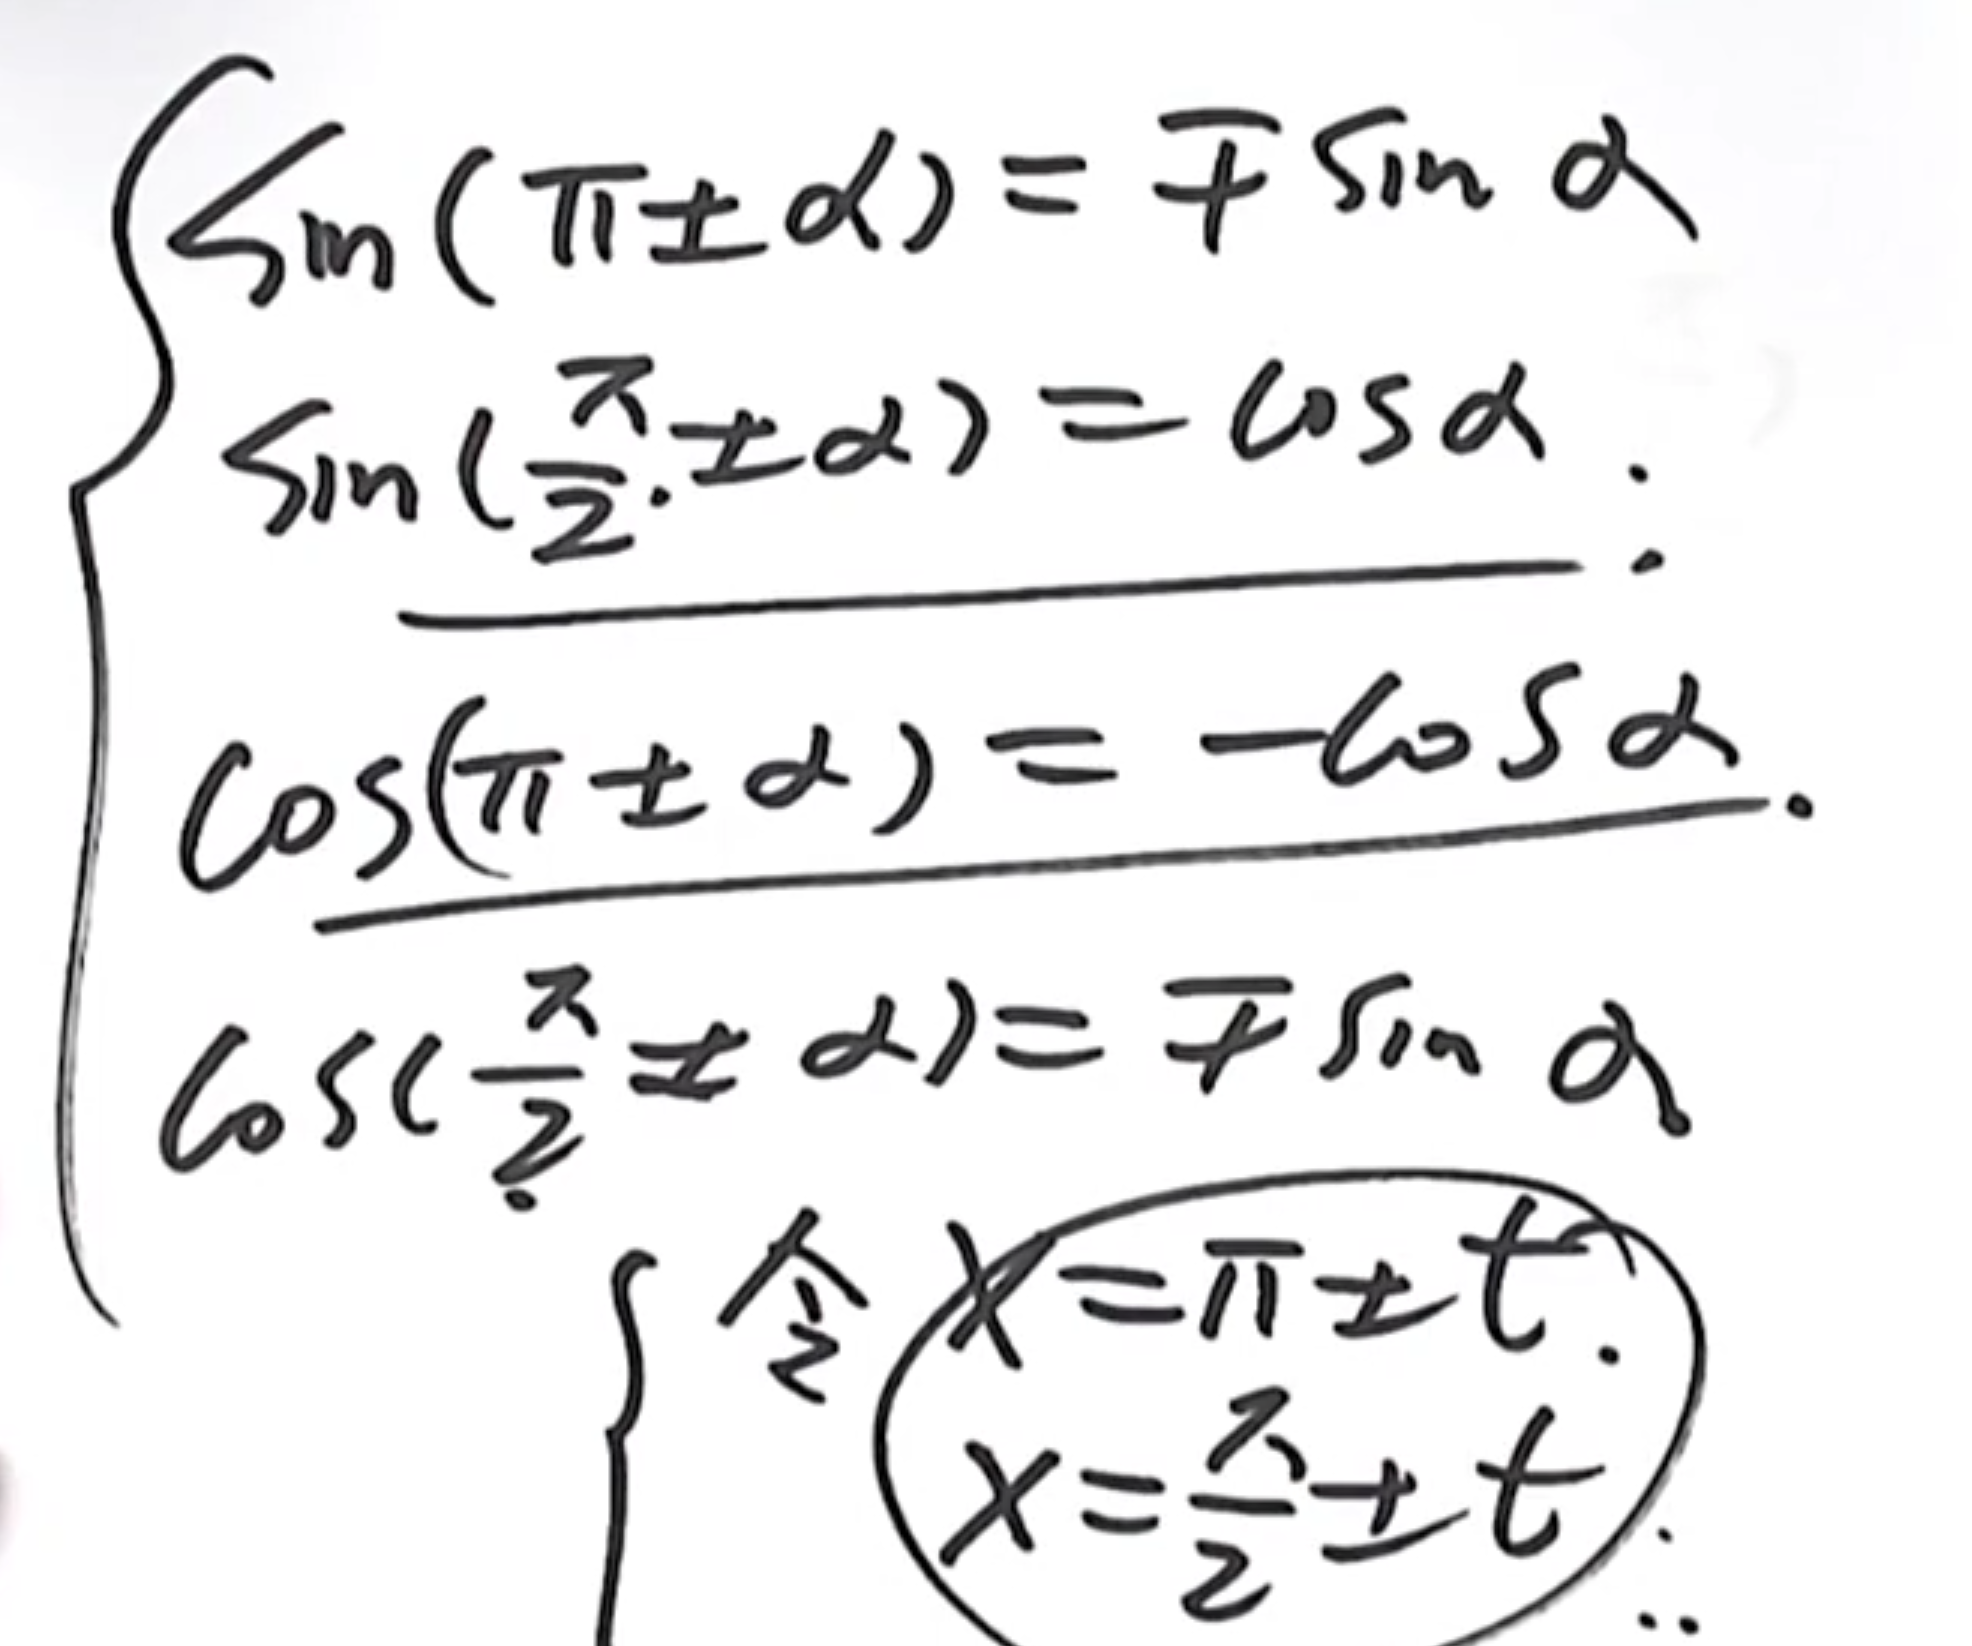 sin(π±α)=∓sinα
sin(π/2±α)=cosα.
cos(π±α)=-cosα.
cos(π/2±α)=∓sinα
令 x=π±t.
x=π/2±t